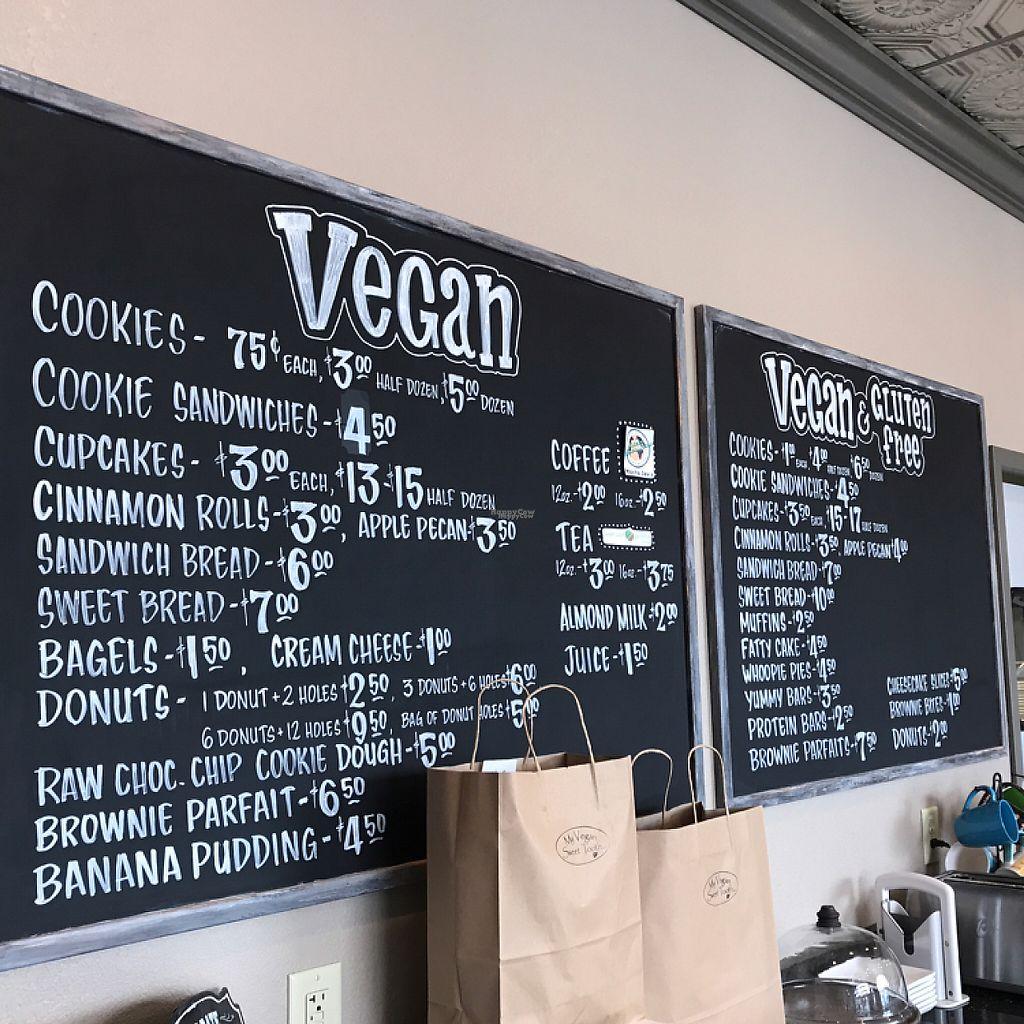 Vegan
COOKIES - 75¢ EACH, $3.00 HALF DOZEN, $5.00 DOZEN
COOKIE SANDWICHES - $4.50
CUPCAKES - $3.00 EACH, $13-$15 HALF DOZEN
CINNAMON ROLLS - $3.00, APPLE PECAN - $3.50
SANDWICH BREAD - $6.00
SWEET BREAD - $7.00
BAGELS - $1.50, CREAM CHEESE - $1.00
DONUTS - 1 DONUT + 2 HOLES $2.50, 3 DONUTS + 6 HOLES $6.00
6 DONUTS + 12 HOLES $9.50, BAG OF DONUT HOLES $5.00
RAW CHOC. CHIP COOKIE DOUGH - $5.00
BROWNIE PARFAIT - $6.50
BANANA PUDDING - $4.50
COFFEE
12oz. - $2.00 16oz. - $2.50
TEA
12oz. - $3.00 16oz. - $3.75
ALMOND MILK - $2.00
JUICE - $1.50
HappyCow
Vegan & GLUTEN free
COOKIES - $1.00 EACH, $4.00 HALF DOZEN, $6.50 DOZEN
COOKIE SANDWICHES - $4.50
CUPCAKES - $3.50 EACH $15-17 HALF DOZEN
CINNAMON ROLLS - $3.50, APPLE PECAN $4.00
SANDWICH BREAD - $7.00
SWEET BREAD - $10.00
MUFFINS - $2.50
FATTY CAKE - $4.50
WHOOPIE PIES - $4.50
YUMMY BARS - $3.50
PROTEIN BARS - $2.50
BROWNIE PARFAITS - $7.50
CHEESECAKE SLICES - $5.00
BROWNIE BITES - $1.00
DONUTS - $2.00
My Vegan
Sweet Tooth
My Vegan
Sweet Tooth